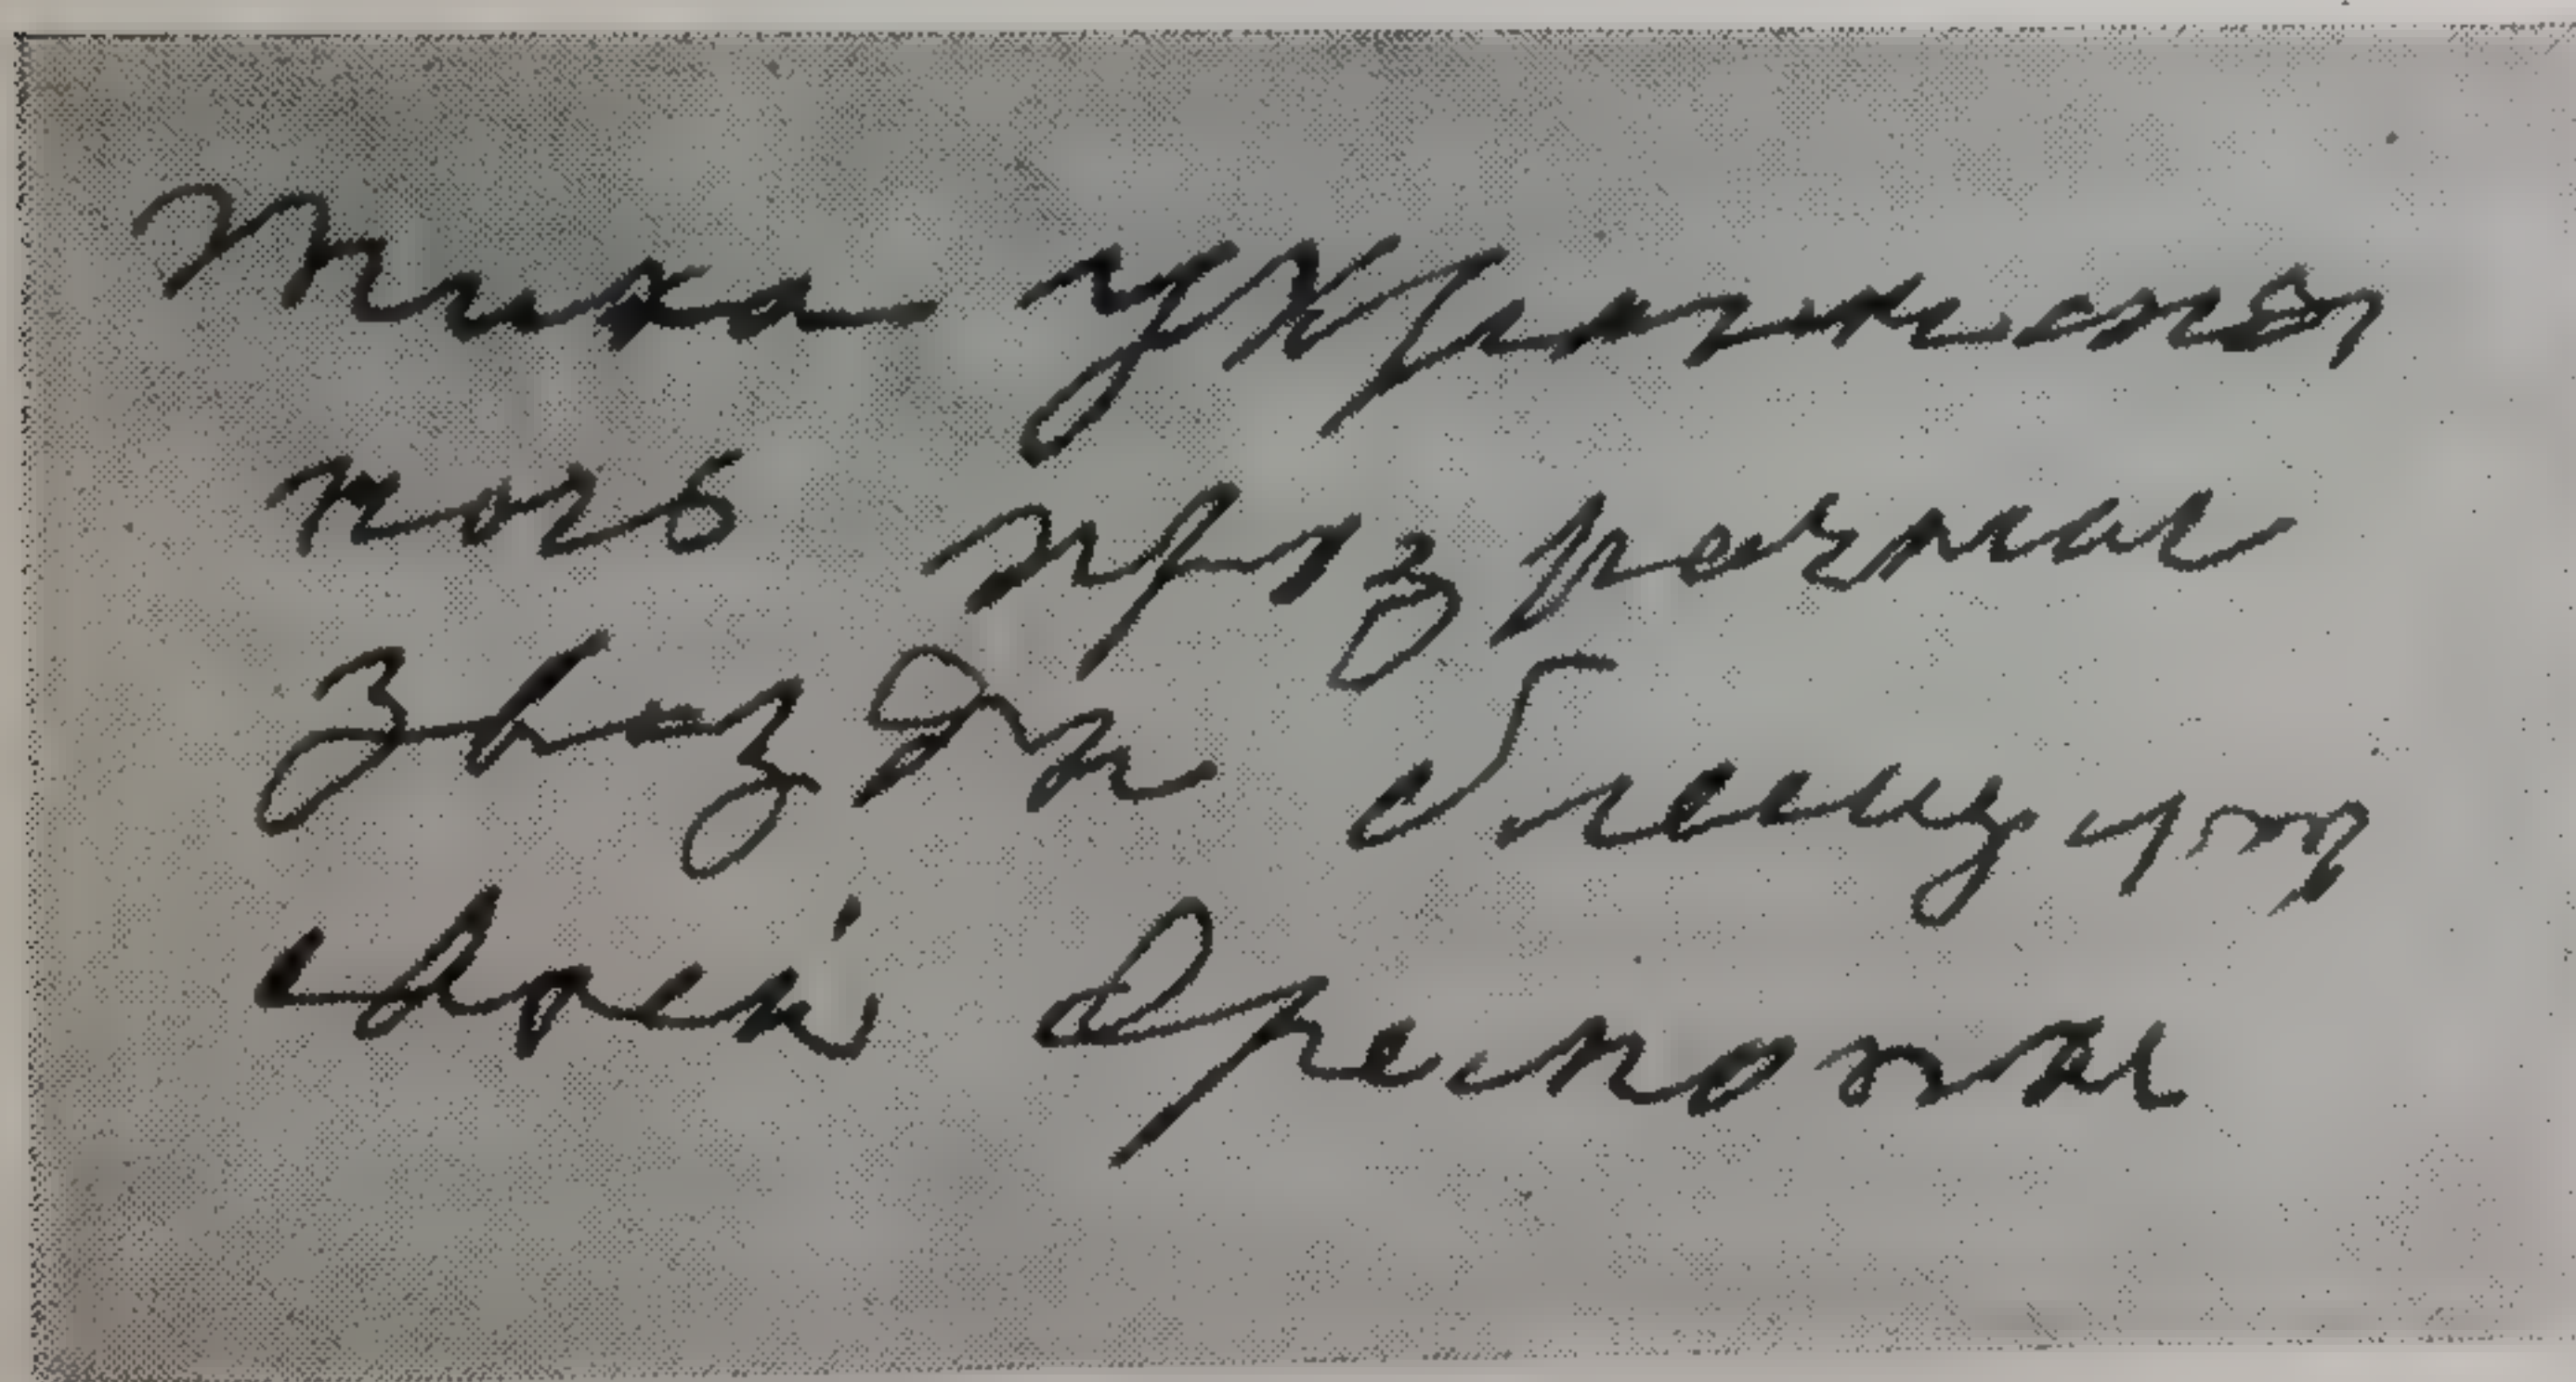 Тиха украинская
ночь прозрачно
звезды блещут
своей дремоты